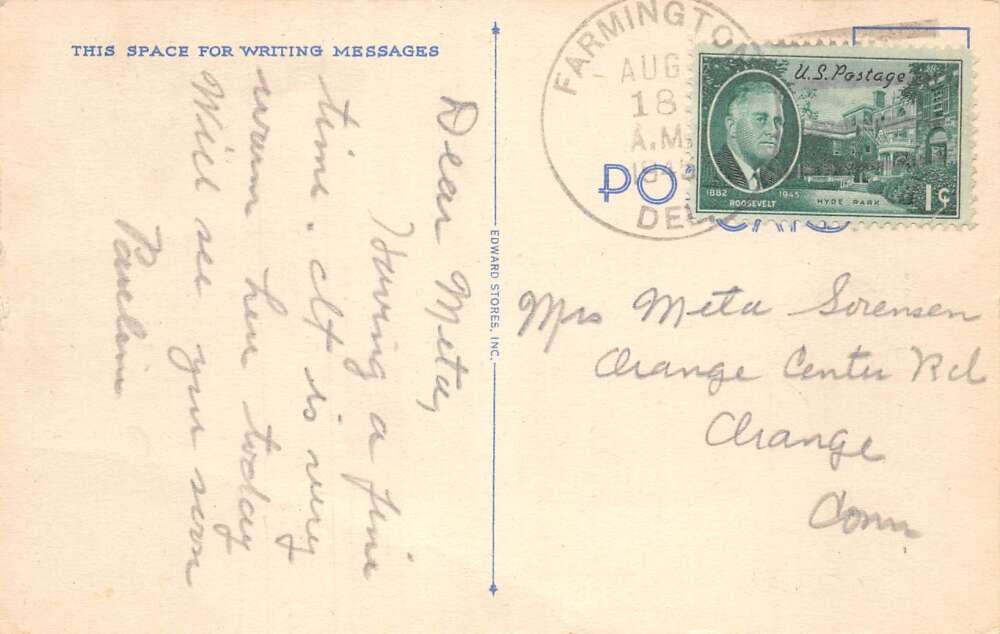 THIS SPACE FOR WRITING MESSAGES
Dear Meta,
Having a fine
time. It is very
warm here today
Will see you soon
EDWARD STORES, INC.
FARMINGTON
AUG
18
A.M.
1945
DEL.
U.S. Postage
1882
1945
ROOSEVELT
HYDE PARK
1¢
Mrs Meta Sorensen
Orange Center Rd
Orange
Conn